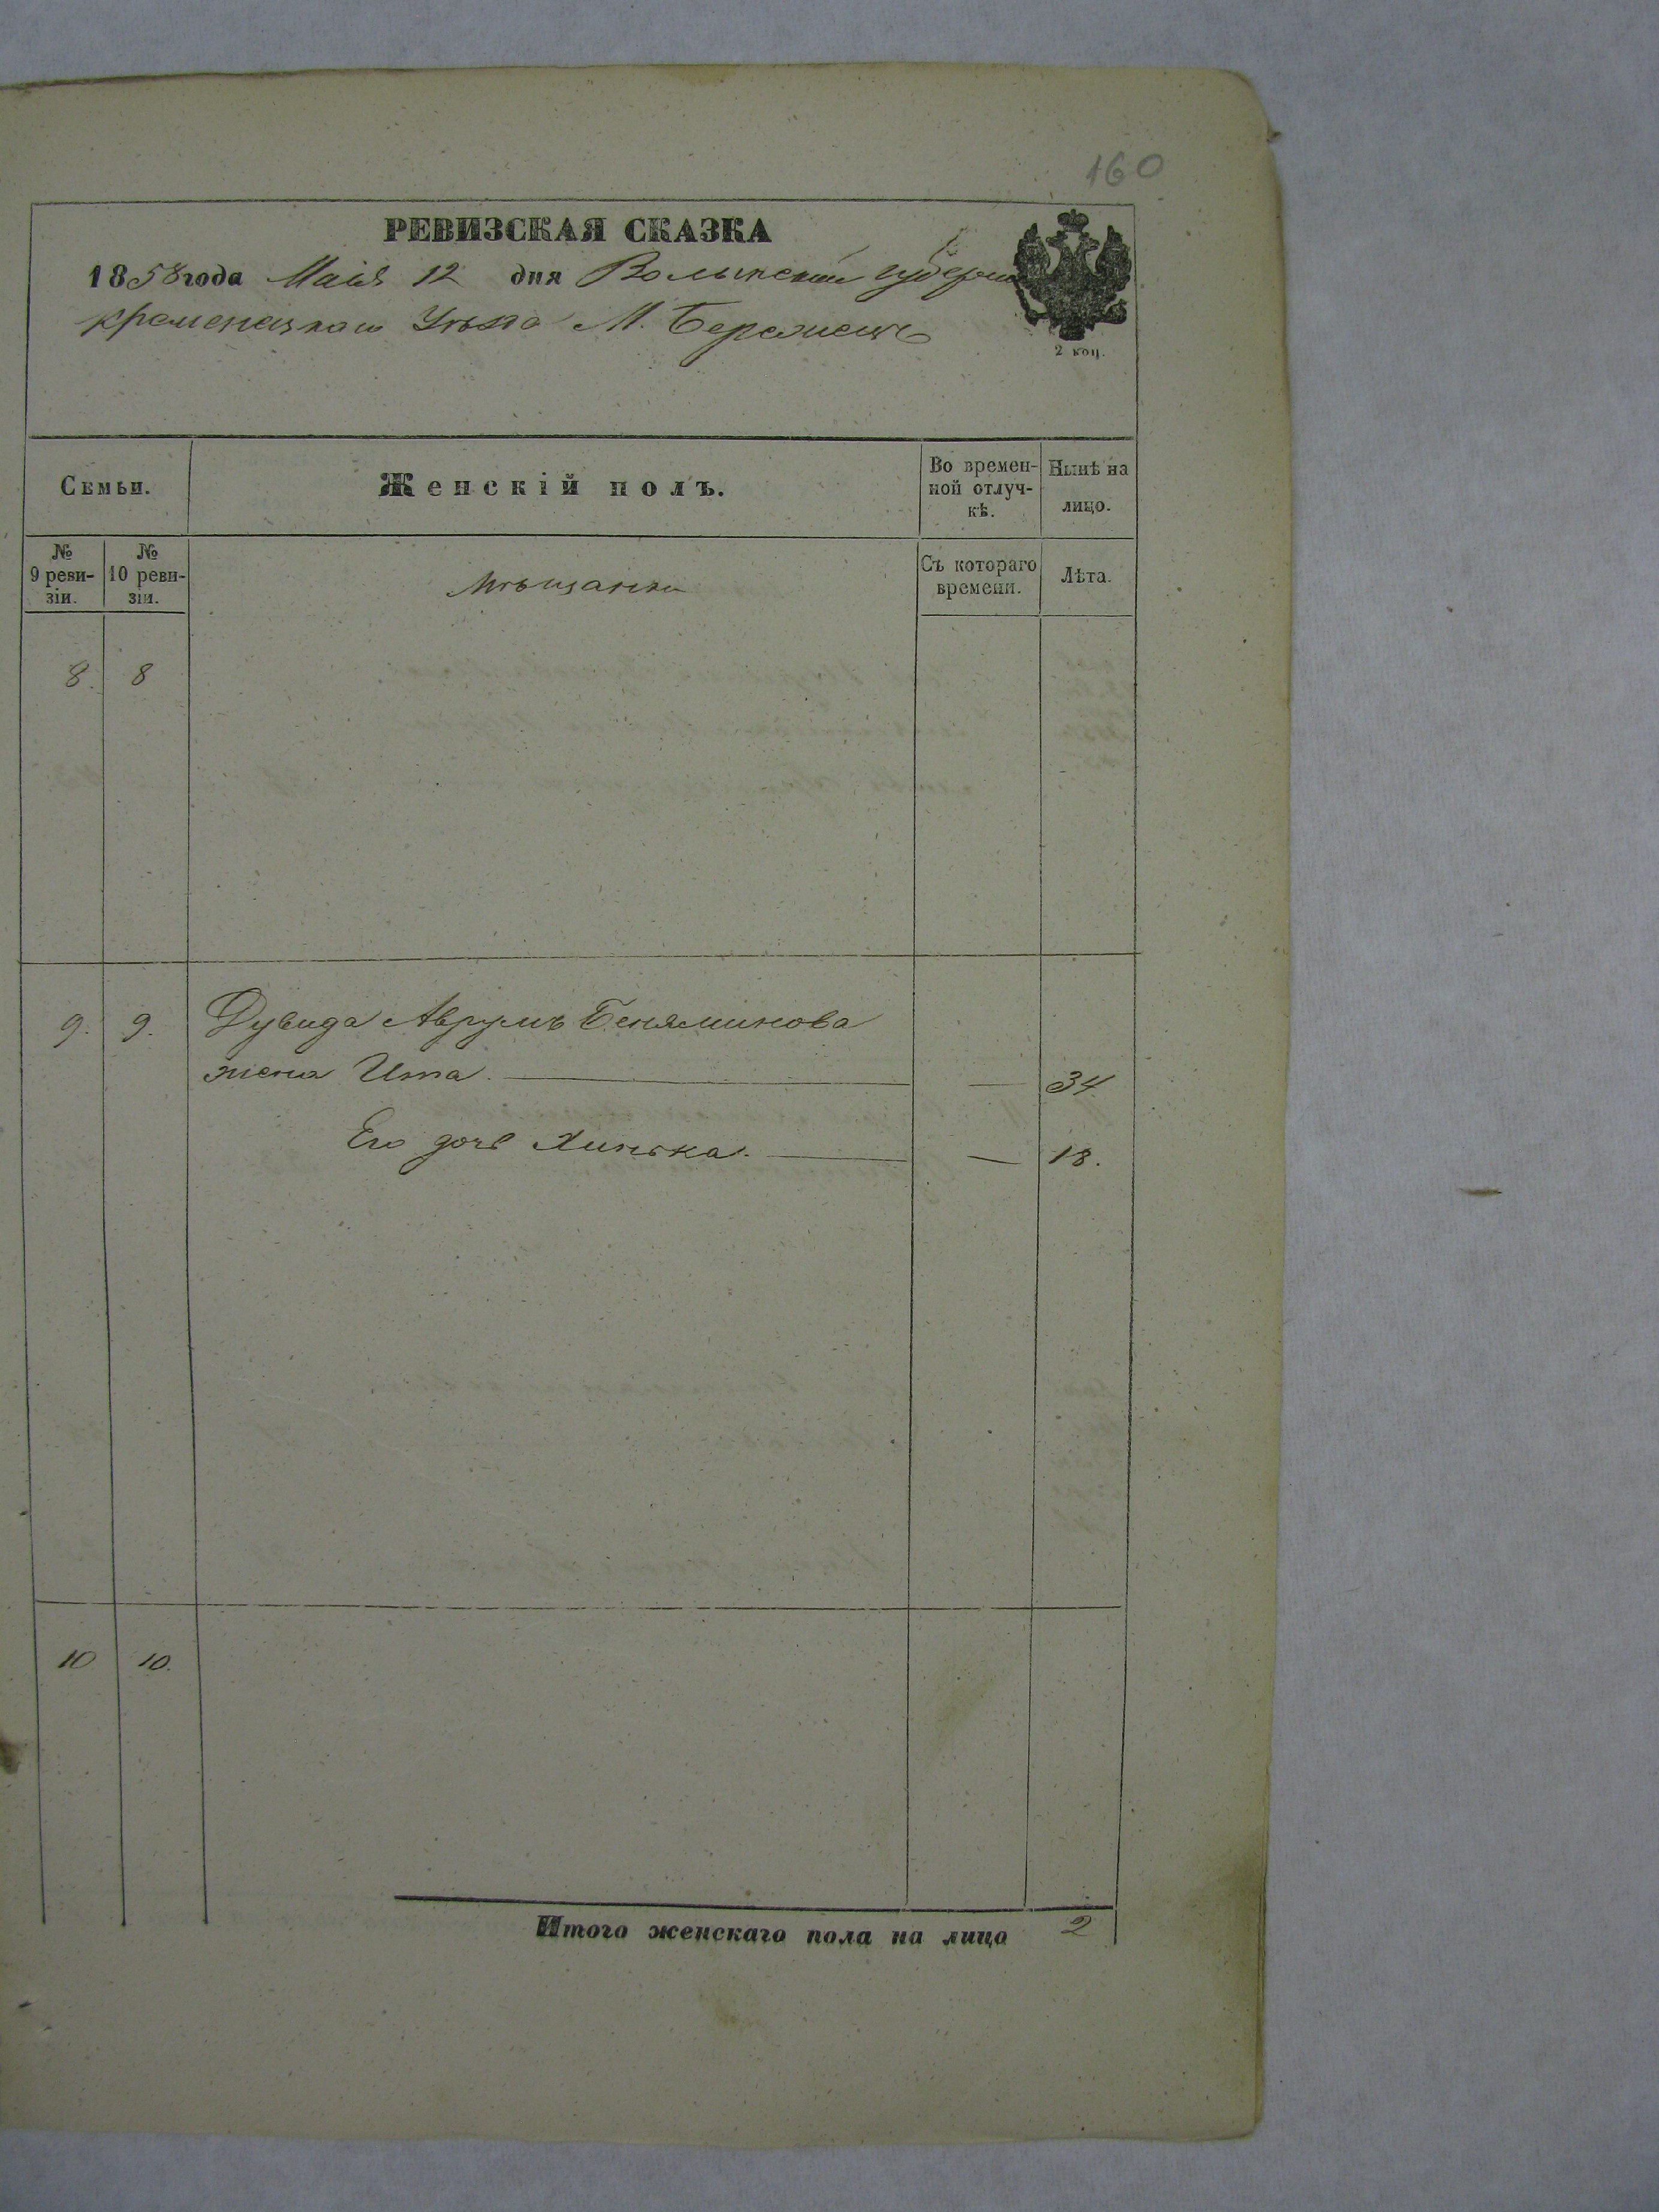 160
РЕВИЗСКАЯ СКАЗКА
1858 года Маія 12 дня Волынской губерніи
Кременецкаго Уѣзда М. Бережецъ
2 коп.
Семьи.
Женскій полъ.
Во времен-
ной отлуч-
кѣ.
Нынѣ на
лицо.
№
9 реви-
зіи.
№
10 реви-
зіи.
Мѣщанки
Съ котораго
времени.
Лѣта.
8. 8
9. 9. Дувида Аврумъ Беняминова
жена Ита. — 34
Его дочь Хинька. — 18.
10 10.
Итого женскаго пола на лицо 2